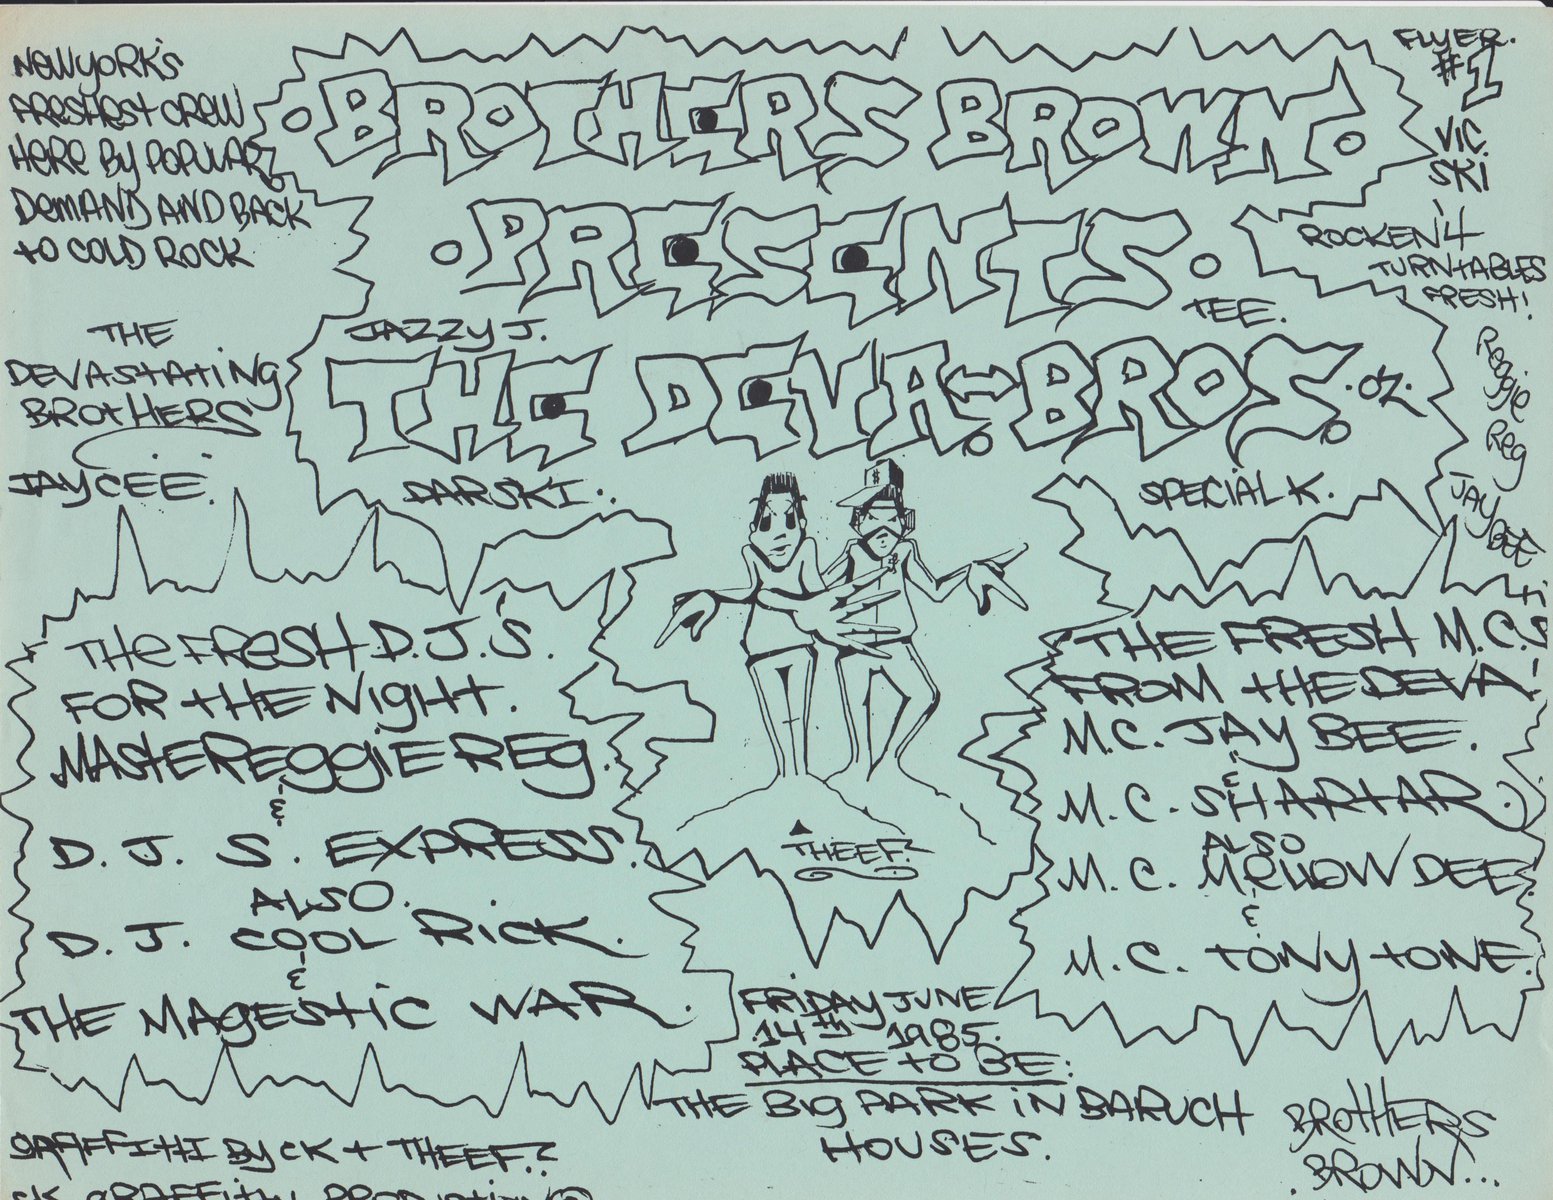 NEW YORK'S
FRESHEST CREW
HERE BY POPULAR
DEMAND AND BACK
TO COLD ROCK
BROTHERS BROWN
PRESENTS
THE DEVA BROS.
FLYER.
#1
VIC.
SKI
ROCKEN' 4
TURNTABLES
FRESH!
TEE.
JAZZY J.
THE
DEVASTATING
BROTHERS
JAYCEE.
DARSKI..
SPECIAL K.
Reggie
Reg
JAY BEE
THE FRESH D.J.'S.
FOR THE NIGHT.
MASTEREGGIE REG.
&
D.J. S. EXPRESS.
ALSO.
D.J. COOL RICK.
&
THE MAGESTIC WAR.
THE FRESH M.C.S
FROM THE DEVA!
M.C. JAY BEE.
&
M.C. SHARTAR.
ALSO
M.C. MELLOW DEE.
&
M.C. TONY TONE.
THEEF.
FRIDAY JUNE
14TH 1985.
PLACE TO BE:
THE BIG PARK IN BARUCH
HOUSES.
GRAFFITTI BY CK + THEEF.?
CK GRAFFITTI PRODUCTION
BROTHERS
BROWN...